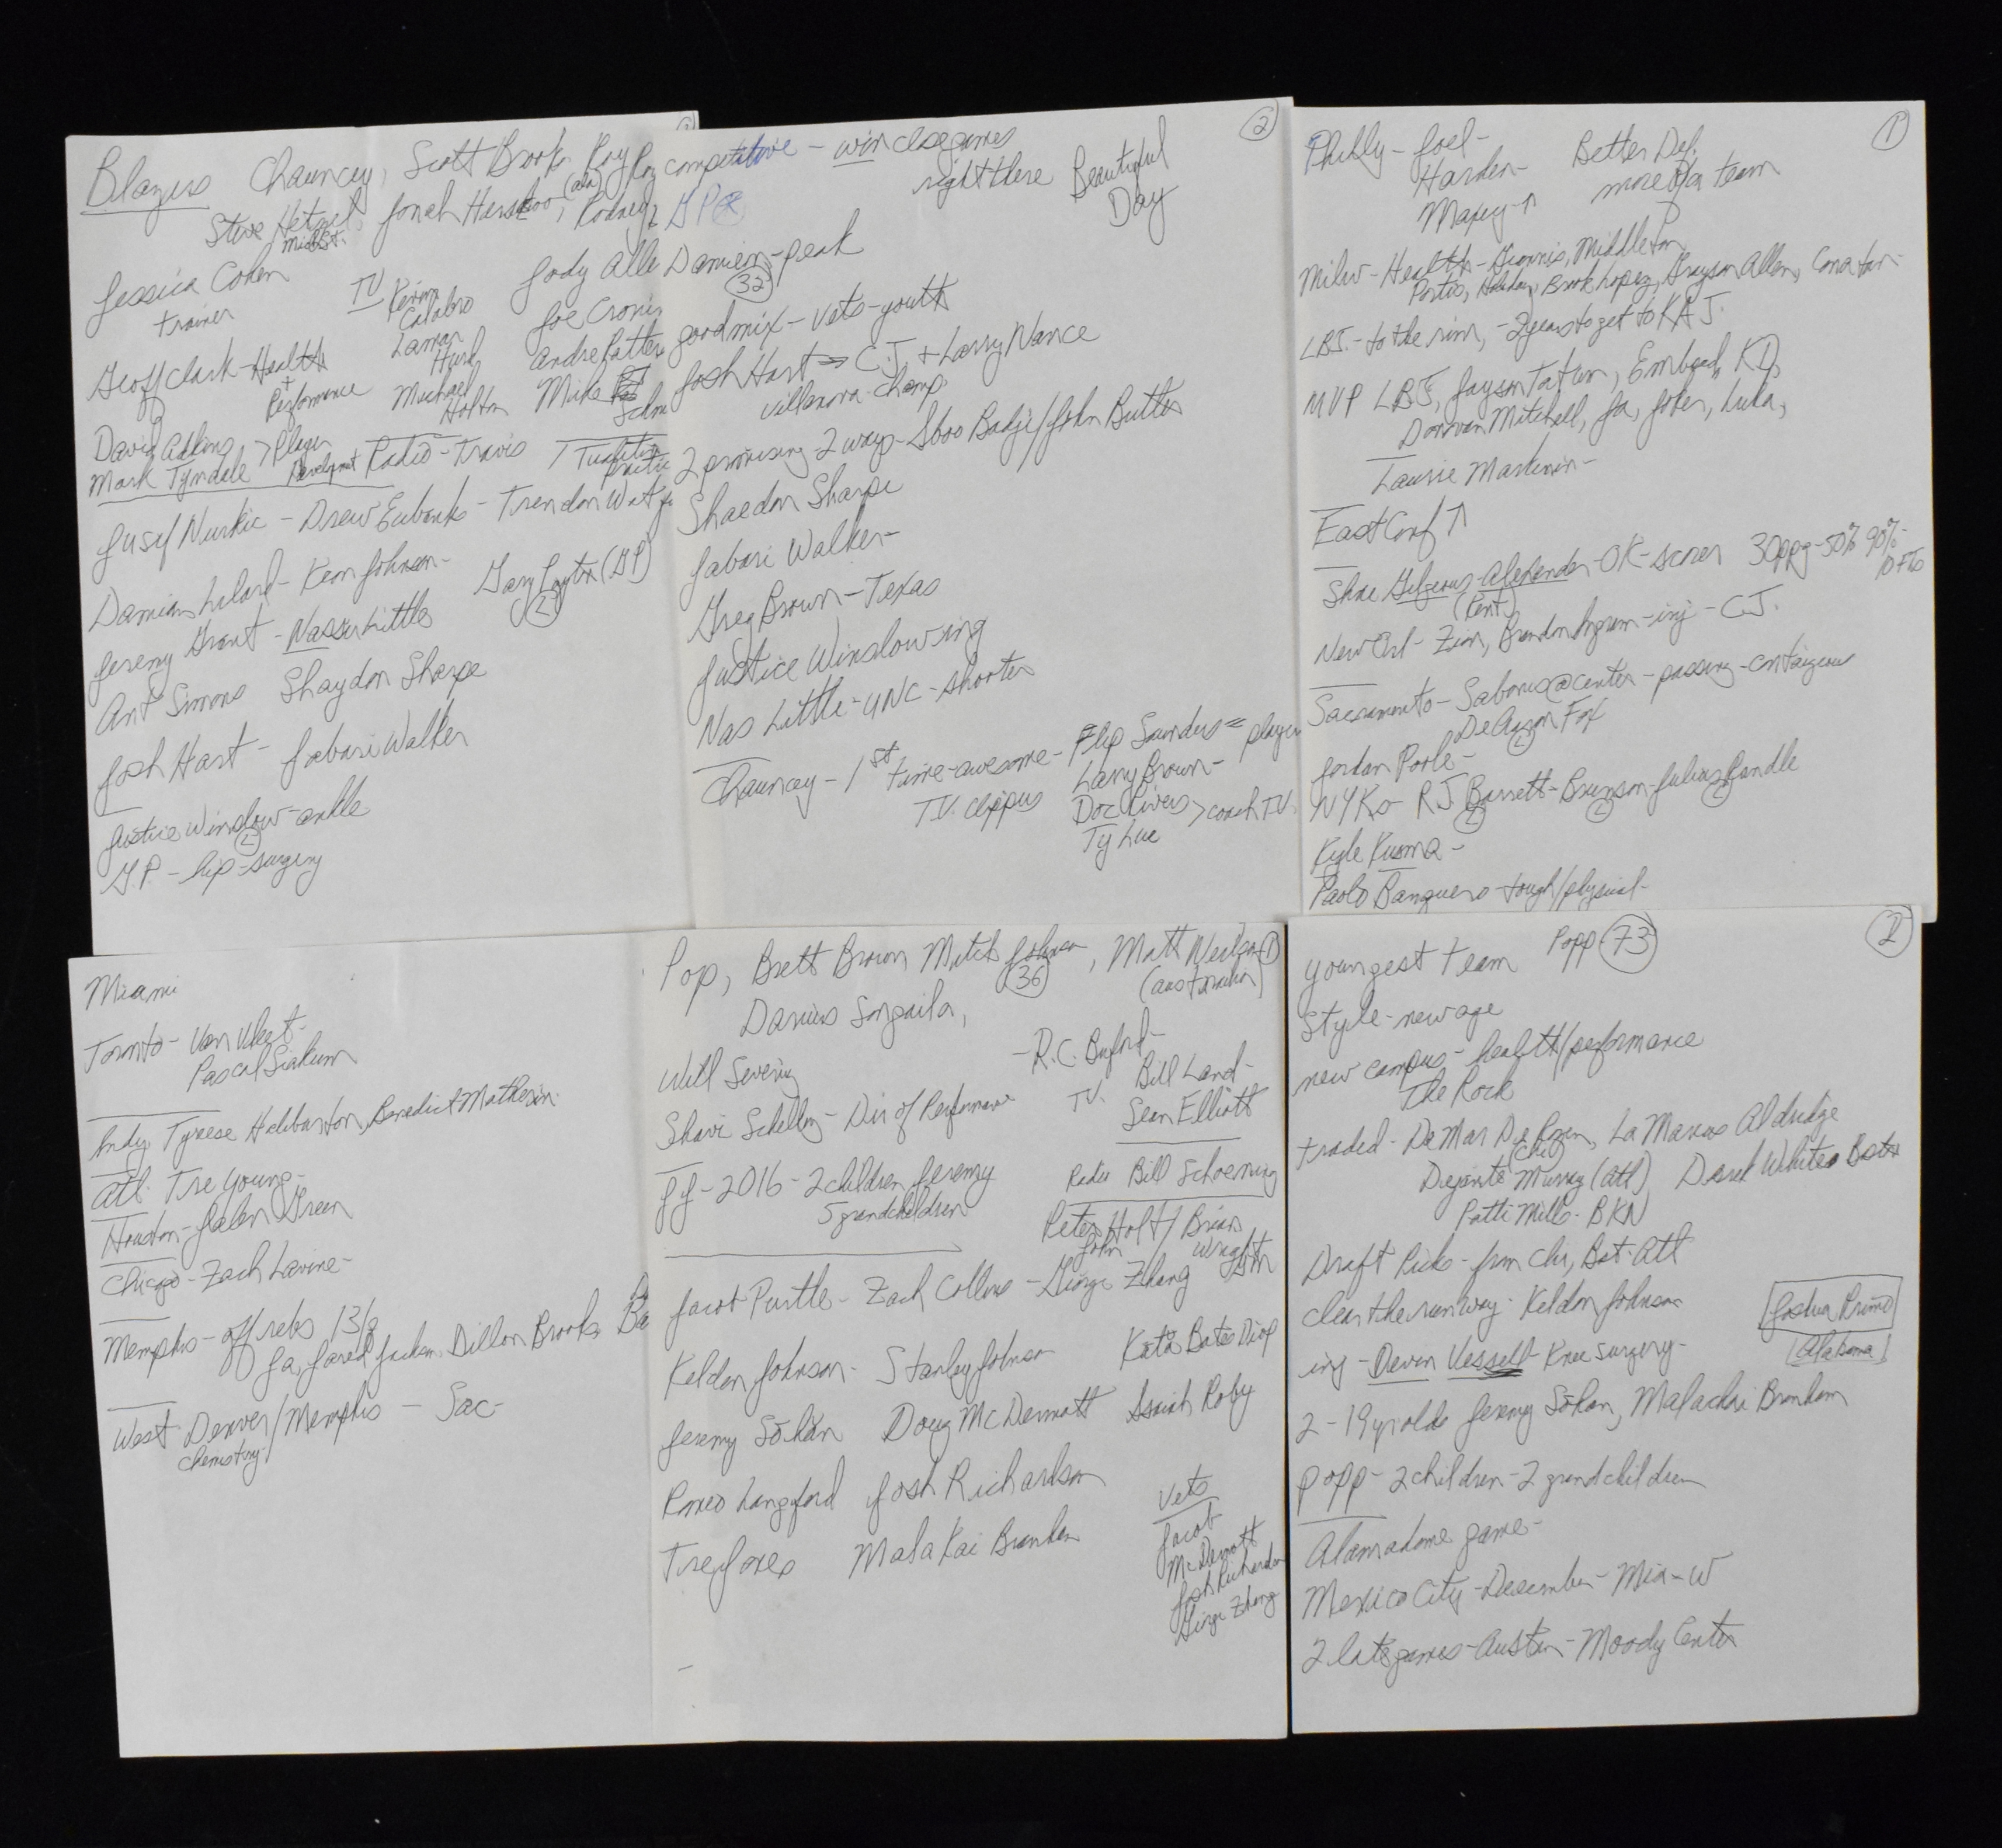 Blazers Chauncey, Scott Brooks Roy
Steve Hetzel, Jonah Herscu (ala), Rodney
Mich St.
Jessica Cohen
trainer
TV Kevin
Calabro
Lamar
Hurd
Michael
Holton
Jody Alle
Joe Cronin
Andre Patters
Mike
Schm
Geoff Clark - Health
+
Performance
David Adkins > Player
Mark Tyndale Developmet
Radio - Travis / Tualitin
Jusuf Nurkic - Drew Eubanks - Trendon Watf
Damian Lilard - Keon Johnson -
Jeremy Grant - Nasser Little
Gary Payton (GP)
2
Ant Simons Shaydon Sharpe
Josh Hart - Jabari Walker
Justice Winslow - ankle
2
G.P. - hip - surgery
2
competitive - win close games
right there
Beautiful
Day
GP
Damien - peak
32
good mix - vets - youth
Josh Hart → C.J. + Larry Nance
Villanova - champ
2 promising 2 ways - Iboo Badji / John Butler
Shaedon Sharpe
Jabari Walker -
Greg Brown - Texas
Justice Winslow ing
Nas Little - UNC - shooter
Chauncey - 1st time - awesome - Flip Saunders = player
T.V. clippers
Larry Brown -
Doc Rivers > coach T.V.
Ty Lue
1
Philly - Joel -
Harden -
Maxey - ↑
Better Def.
more of a team
Milw - Health - Giannis, Middleton
Portis, Holiday, Brook Lopez, Grayson Allen, Conaton -
LBJ. - to the rim, - 2 years to get to KAJ.
MVP LBJ, Jayson Tatum, Embead, KD,
Donovan Mitchell, Ja, Joker, Luka,
Laurie Markinin -
East Conf ↑
Shae Gilgeous - Alexander - OK - scorer 30 ppg - 50% 90% -
(Kent)
10 FTs
New Orl - Zion, Brandon Ingram - inj - C.J.
Sacramento - Sabonis @ center - passing - contageous
De Aaron Fox
2
Jordan Poole -
NYKs - RJ Barrett - Brunson - Julius Randle
2 2 2
Kyle Kusma -
Paolo Banquero - tough/physical -
Miami
Toronto - Van Vleet -
Pascal Siakum
Indy, Tyrese Haliburton, Benedict Matherin
Atl. Tre Young -
Houston - Jalen Green
Chicago - Zach Lavine -
Memphis - off rebs 13/g
Ja, Jared Jackson, Dillon Brooks, Ba
West Denver / Memphis - Sac -
chemistry
1
Pop, Brett Brown Mitch Johnson, Matt Neilson
36
(australian)
Darius Songaila,
Will Sevening
- R.C. Buford -
Shavi Schelling - Dir of Performance
TV.
Bill Land -
Sean Elliott
JJ - 2016 - 2 children Jeremy
5 grandchildren
Radio Bill Schoening
Peter Holt / Brian
John Wright
GM
Jacob Purtle - Zach Collins - Giorge Zhang
Keldon Johnson - Stanley Johnson Kata Bates Diop
Jeremy Sohan Doug McDermott Isaiah Roby
Romeo Langford Josh Richardson
Tre Jones Malakai Branham
Vets
Jacob
McDermott
Josh Richardson
Giorge Zhang
2
youngest team Popp 73
style - new age
new campus - health/performance
The Rock
traded - DeMar DeRozen, La Marcus Aldridge
(Chi)
Dejonte Murray (Atl) Derek White Bost
Patti Mills - BKN
Draft Picks - from Chi, Bost - Atl
clear the runway - Keldon Johnson
Joshua Primo
(Alabama)
inj - Deven Vessell Knee surgery -
2 - 19 yr olds Jeremy Sohan, Malachi Branham
Popp - 2 children - 2 grandchildren
Alamadome game -
Mexico City - December - Mia - W
2 late games - Austin - Moody Center